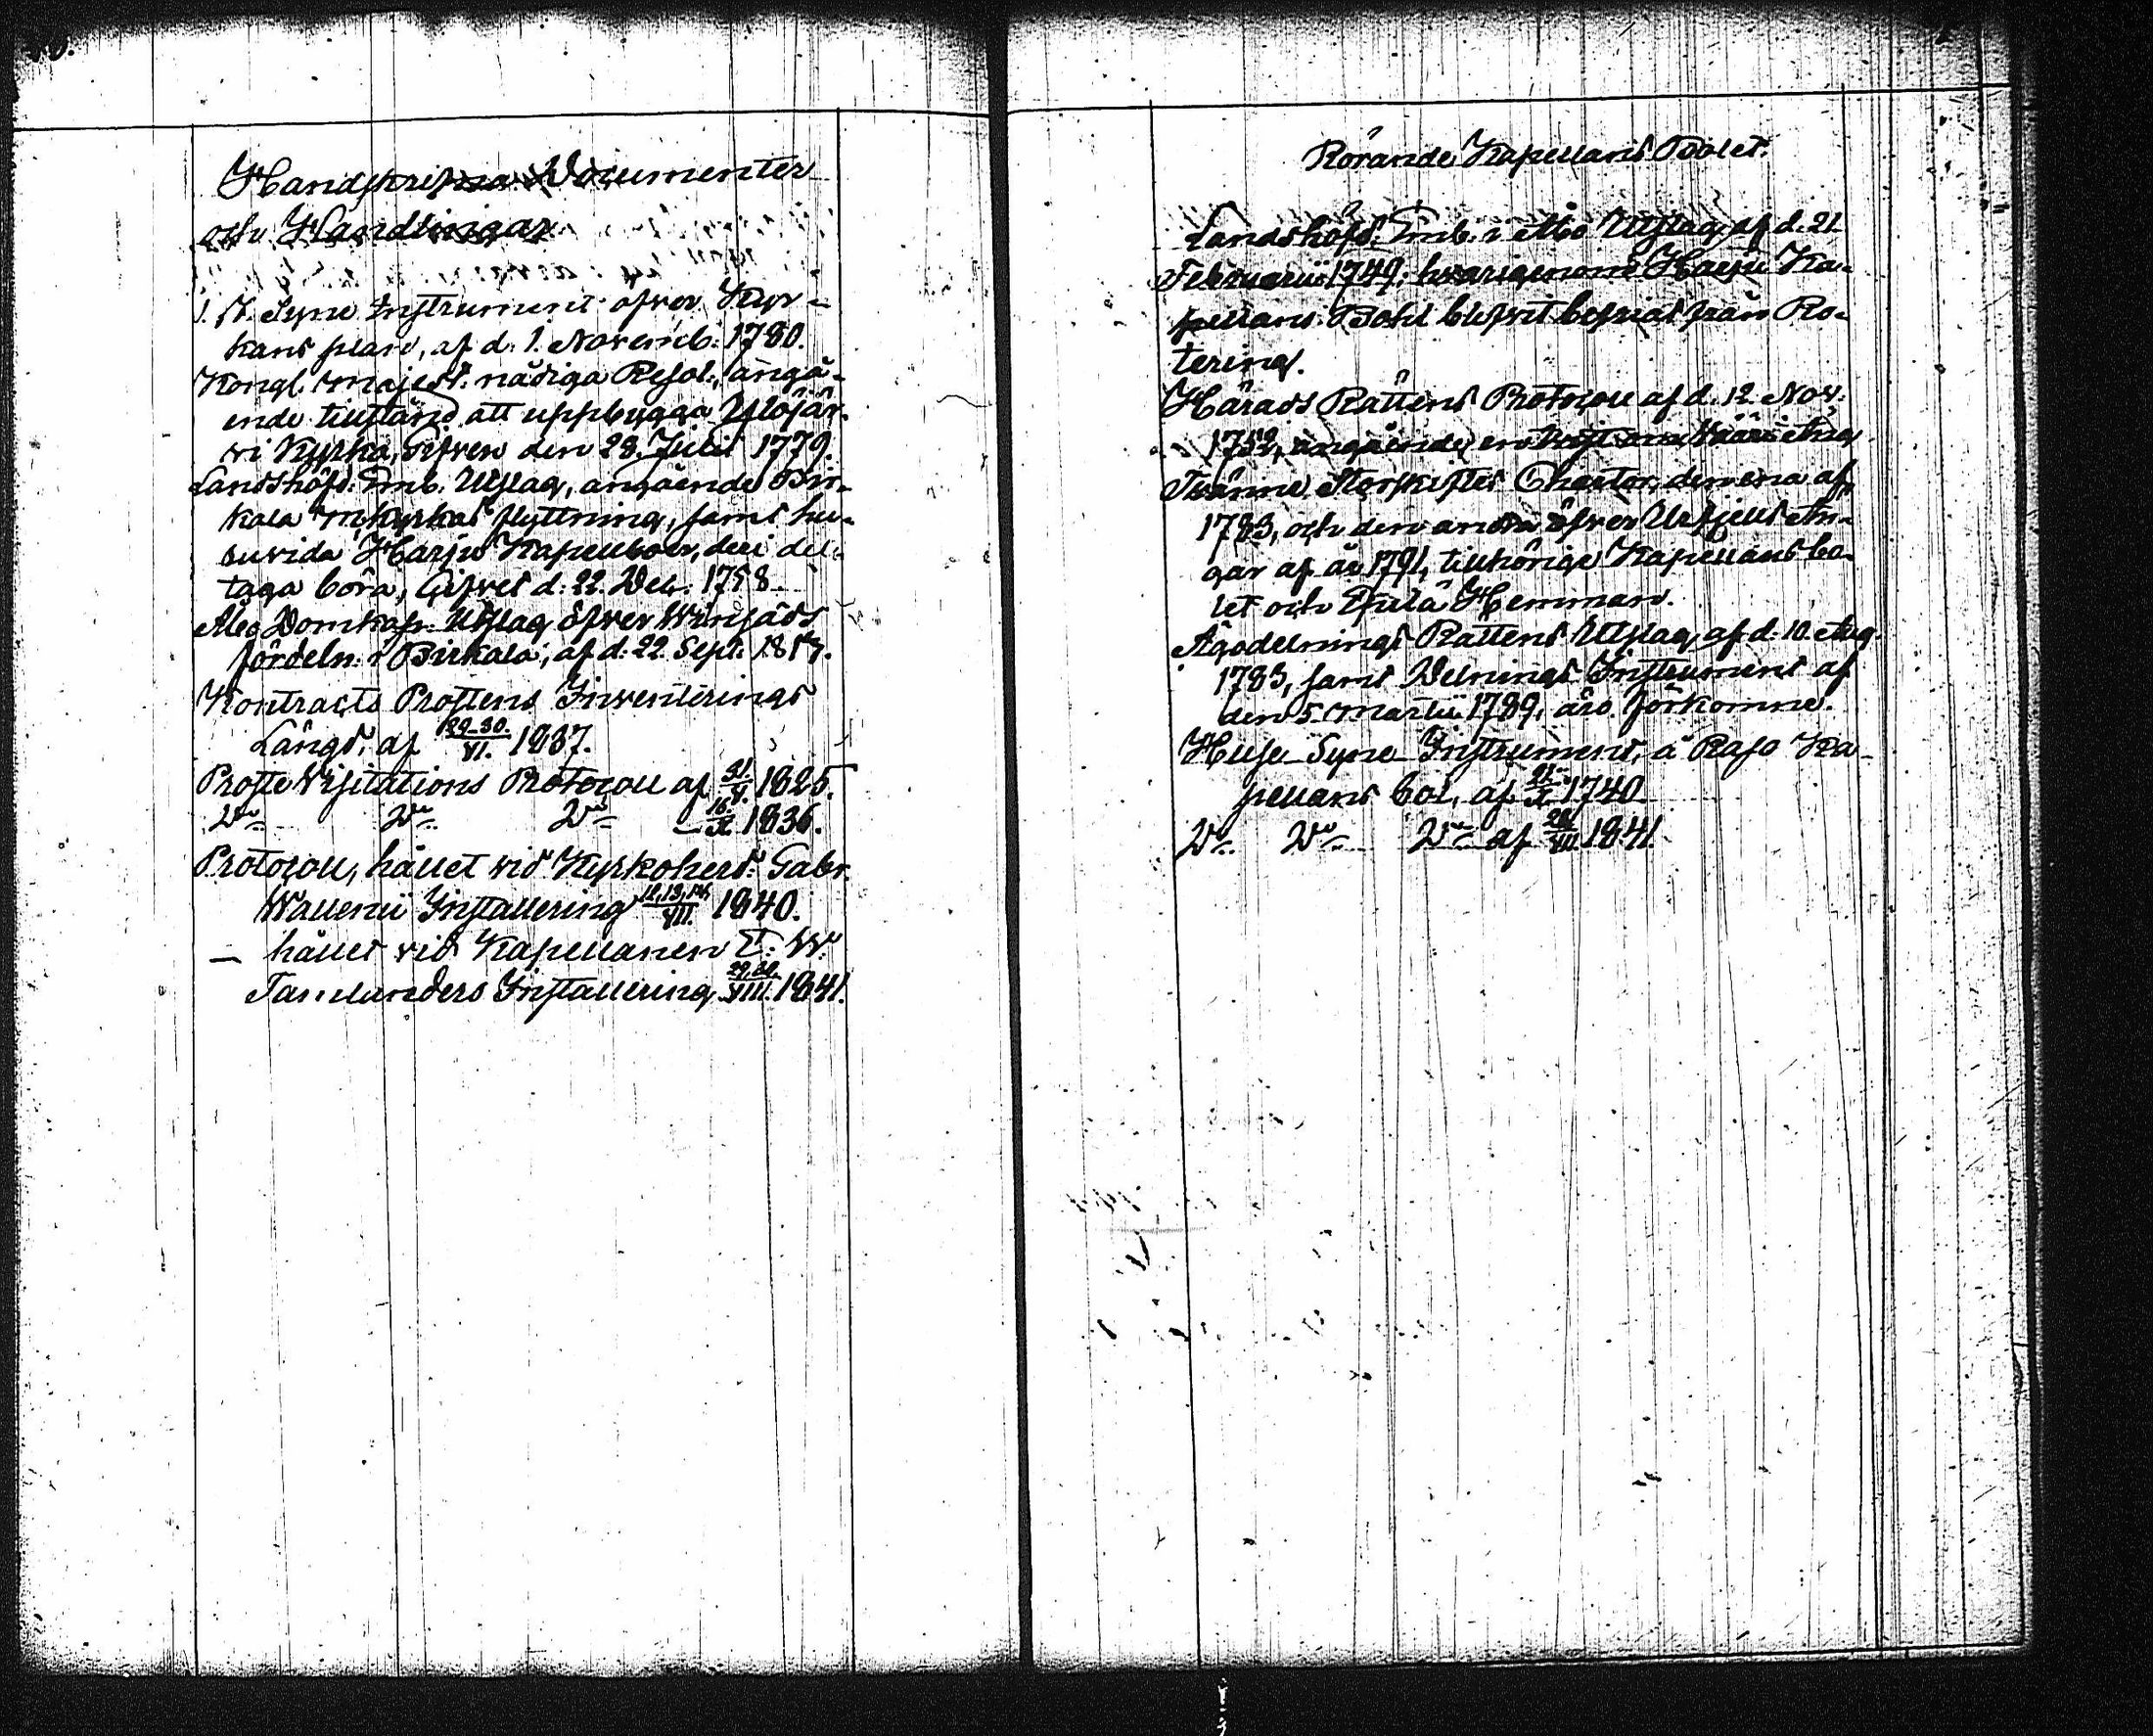 Handskrifna Documenter
och Handlingar
1. St. Syne Instrument öfver Kyr-
kans plan, af d. 1. Novemb. 1780.
Kongl. Majest. nådiga Resol., angå-
ende tillstånd att uppbygga Ylöjär-
vi Kyrka, Gifven den 28. Julii 1779.
Landshöfd. Emb. Utslag, angående Bir-
kala M.kyrkas flyttning, samt hu-
ruvida Harju Kapellboer, deri del-
taga böra, Gifvet d. 22. Dec. 1758.
Åbo Domkap. Utslag öfver Winsäds
fördeln. i Birkala, af d. 22. Sept. 1817.
Kontracts Prostens Inventerings
Längd, af 29-30./VI. 1837.
Proste Visitations Protocoll af 31./V. 1825.
Do Do Do — 16./X. 1836.
Protocoll, hållet vid Kyrkoherd. Gabr.
Wallenii Installering 12,13,14./VII. 1840.
— hållet vid Kapellanen E. W.
Tandunders Installering 29,30./VIII. 1841.
Rörande Kapellans Bolet.
Landshöfd. Emb. i Åbo Utslag af d. 21
Februarii 1749; hvarigenom Harju Ka-
pellans Bohl blifvit befriat från Ro-
tering.
Härads Rättens Protocoll af d. 12. Nov.
1752, angående en äng
Tvänne Storskiftes Chartor, den ena af
1783, och den andra öfver Utfjells än-
gar af år 1791, tillhörige Kapellans bo-
let och Epilä Hemman.
Ägodelnings Rättens Utslag af d. 10. Aug.
1783, samt Delnings Instrument af
den 5. Martii 1789, äro förkomne.
Huse Syne Instrument, å Raso Ka-
pellans bol, af 21./X. 1740
Do Do Do af 28./VII 1841.